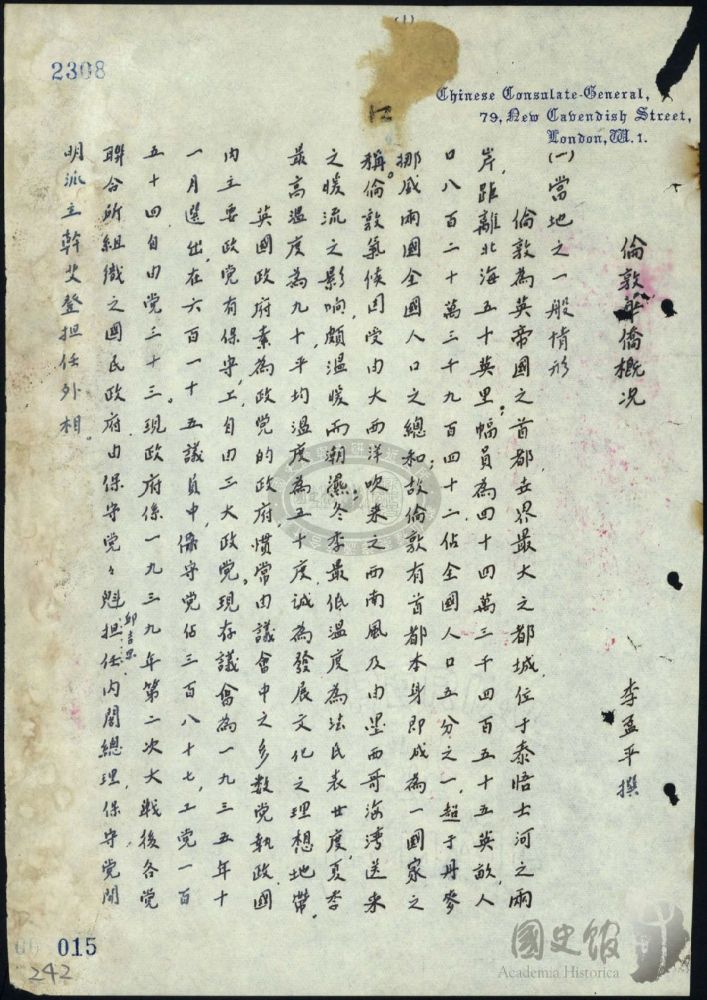 (1)
2308
Chinese Consulate-General,
79, New Cavendish Street,
London, W. 1.
倫敦華僑概况
李孟平撰
(一)當地之一般情形
倫敦為英帝國之首都,世界最大之都城,位于泰悟士河之兩
岸,距離北海五十英里;幅員為四十四萬三千四百五十五英畝,人
口八百二十萬三千九百四十二,佔全國人口五分之一,超于丹麥
挪威兩國全國人口之總和;故倫敦有首都本身即成為一國家之
稱。倫敦氣候因受由大西洋吹來之西南風及由墨西哥海湾送來
之暖流之影响,頗温暖而潮濕;冬季最低温度為法氏表廿度,夏季
最高温度為九十,平均温度為五十度,誠為發展文化之理想地帶。
英國政府素為政党的政府,慣常由議會中之多数党執政。國
内主要政党有保守,工,自由三大政党。現存議會為一九三五年十
一月選出,在六百一十五議員中,保守党佔三百八十七,工党一百
五十四,自由党三十三。現政府係一九三九年第二次大戰後各党
聯合所組織之國民政府,由保守党々魁邱吉尔担任内閣總理,保守党開
明派主幹艾登担任外相。
015
242
國史館
Academia Historica